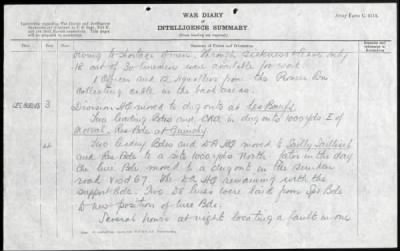 WAR DIARY
Army Form C. 2118.
or
INTELLIGENCE SUMMARY.
(Erase heading not required.)
Instructions regarding War Diaries and Intelligence
Summaries are contained in F. S. Regs., Part II.
and the Staff Manual respectively. Title pages
will be prepared in manuscript.
Summary of Events and Information
owing to shortage of men. Through sickness & leave only
16 out of 30 linesmen were available for work.
1 Officer and 12 Signallers from the Pioneer Bn
collecting cable in the back areas.
3 Division HQ moved to dugouts at Les Boeufs
Two leading Bdes and CRA in dugouts 1000 yds E of
Morval. Res Bde at Guinchy
4 Two leading Bdes and DA HQ moved to Sailly Saillisel
and Res Bde to a site 1000 yds North. Later in the day
the line Bde moved to a dugout in the sunken
road. The DA HQ remaining with the
support Bde. Two lines were laid from Sup Bde
to new position of line Bde.
Several hours at night locating a fault in one